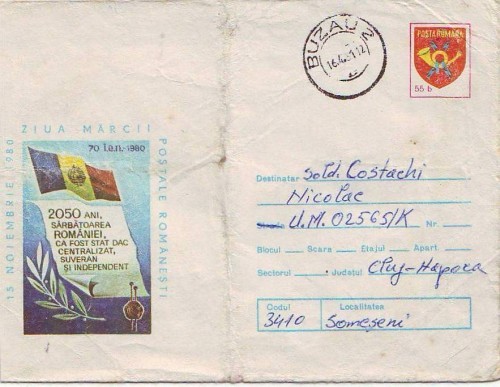 BUZAU 2
POSTA ROMANA
55 b
ZIUA MĂRCII
POȘTALE ROMÂNEȘTI
15 NOIEMBRIE 1980
70 î.e.n.-1980
2050 ANI,
SĂRBĂTOAREA
ROMÂNIEI,
CA FOST STAT DAC
CENTRALIZAT,
SUVERAN
ȘI INDEPENDENT
Destinatar Sold. Costachi
Nicolae
U.M. 02565/K Nr.
Blocul Scara Etajul Apart.
Sectorul Județul Cluj-Napoca
Codul Localitatea
3410 Someșeni